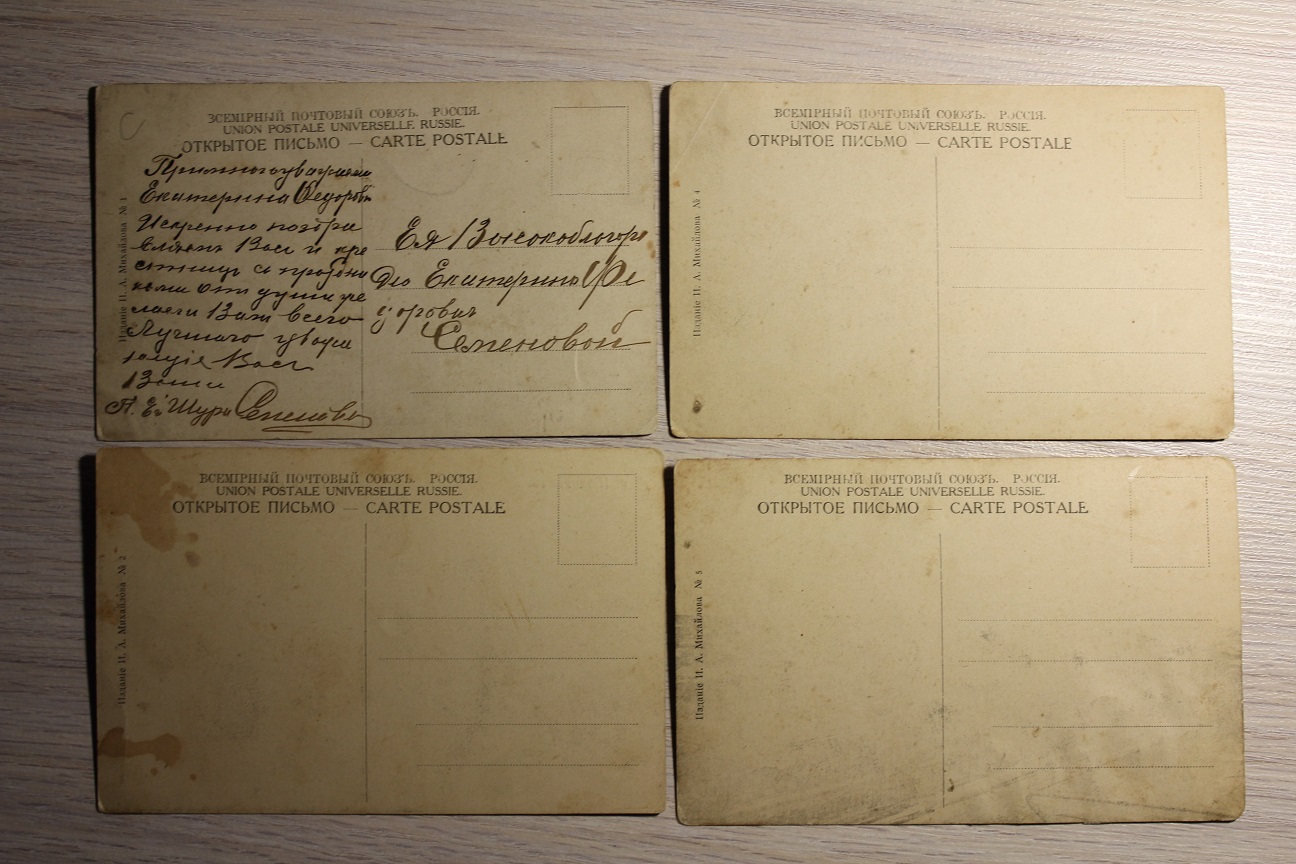 ВСЕМІРНЫЙ ПОЧТОВЫЙ СОЮЗЪ. РОССІЯ.
UNION POSTALE UNIVERSELLE RUSSIE.
ОТКРЫТОЕ ПИСЬМО — CARTE POSTALE
Изданіе П. А. Михайлова № 1
Екатерина Федоровн
Искренно поздра
вляемъ Васъ и
отъ души же
лаемъ Вамъ всего
Лучшаго
Васъ
Шура Семенова
Ея Высокоблагоро
дію Екатеринѣ Фе
доровнѣ
Семеновой
ВСЕМІРНЫЙ ПОЧТОВЫЙ СОЮЗЪ. РОССІЯ.
UNION POSTALE UNIVERSELLE RUSSIE.
ОТКРЫТОЕ ПИСЬМО — CARTE POSTALE
Изданіе П. А. Михайлова № 4
ВСЕМІРНЫЙ ПОЧТОВЫЙ СОЮЗЪ. РОССІЯ.
UNION POSTALE UNIVERSELLE RUSSIE.
ОТКРЫТОЕ ПИСЬМО — CARTE POSTALE
Изданіе П. А. Михайлова № 2
ВСЕМІРНЫЙ ПОЧТОВЫЙ СОЮЗЪ. РОССІЯ.
UNION POSTALE UNIVERSELLE RUSSIE.
ОТКРЫТОЕ ПИСЬМО — CARTE POSTALE
Изданіе П. А. Михайлова № 5